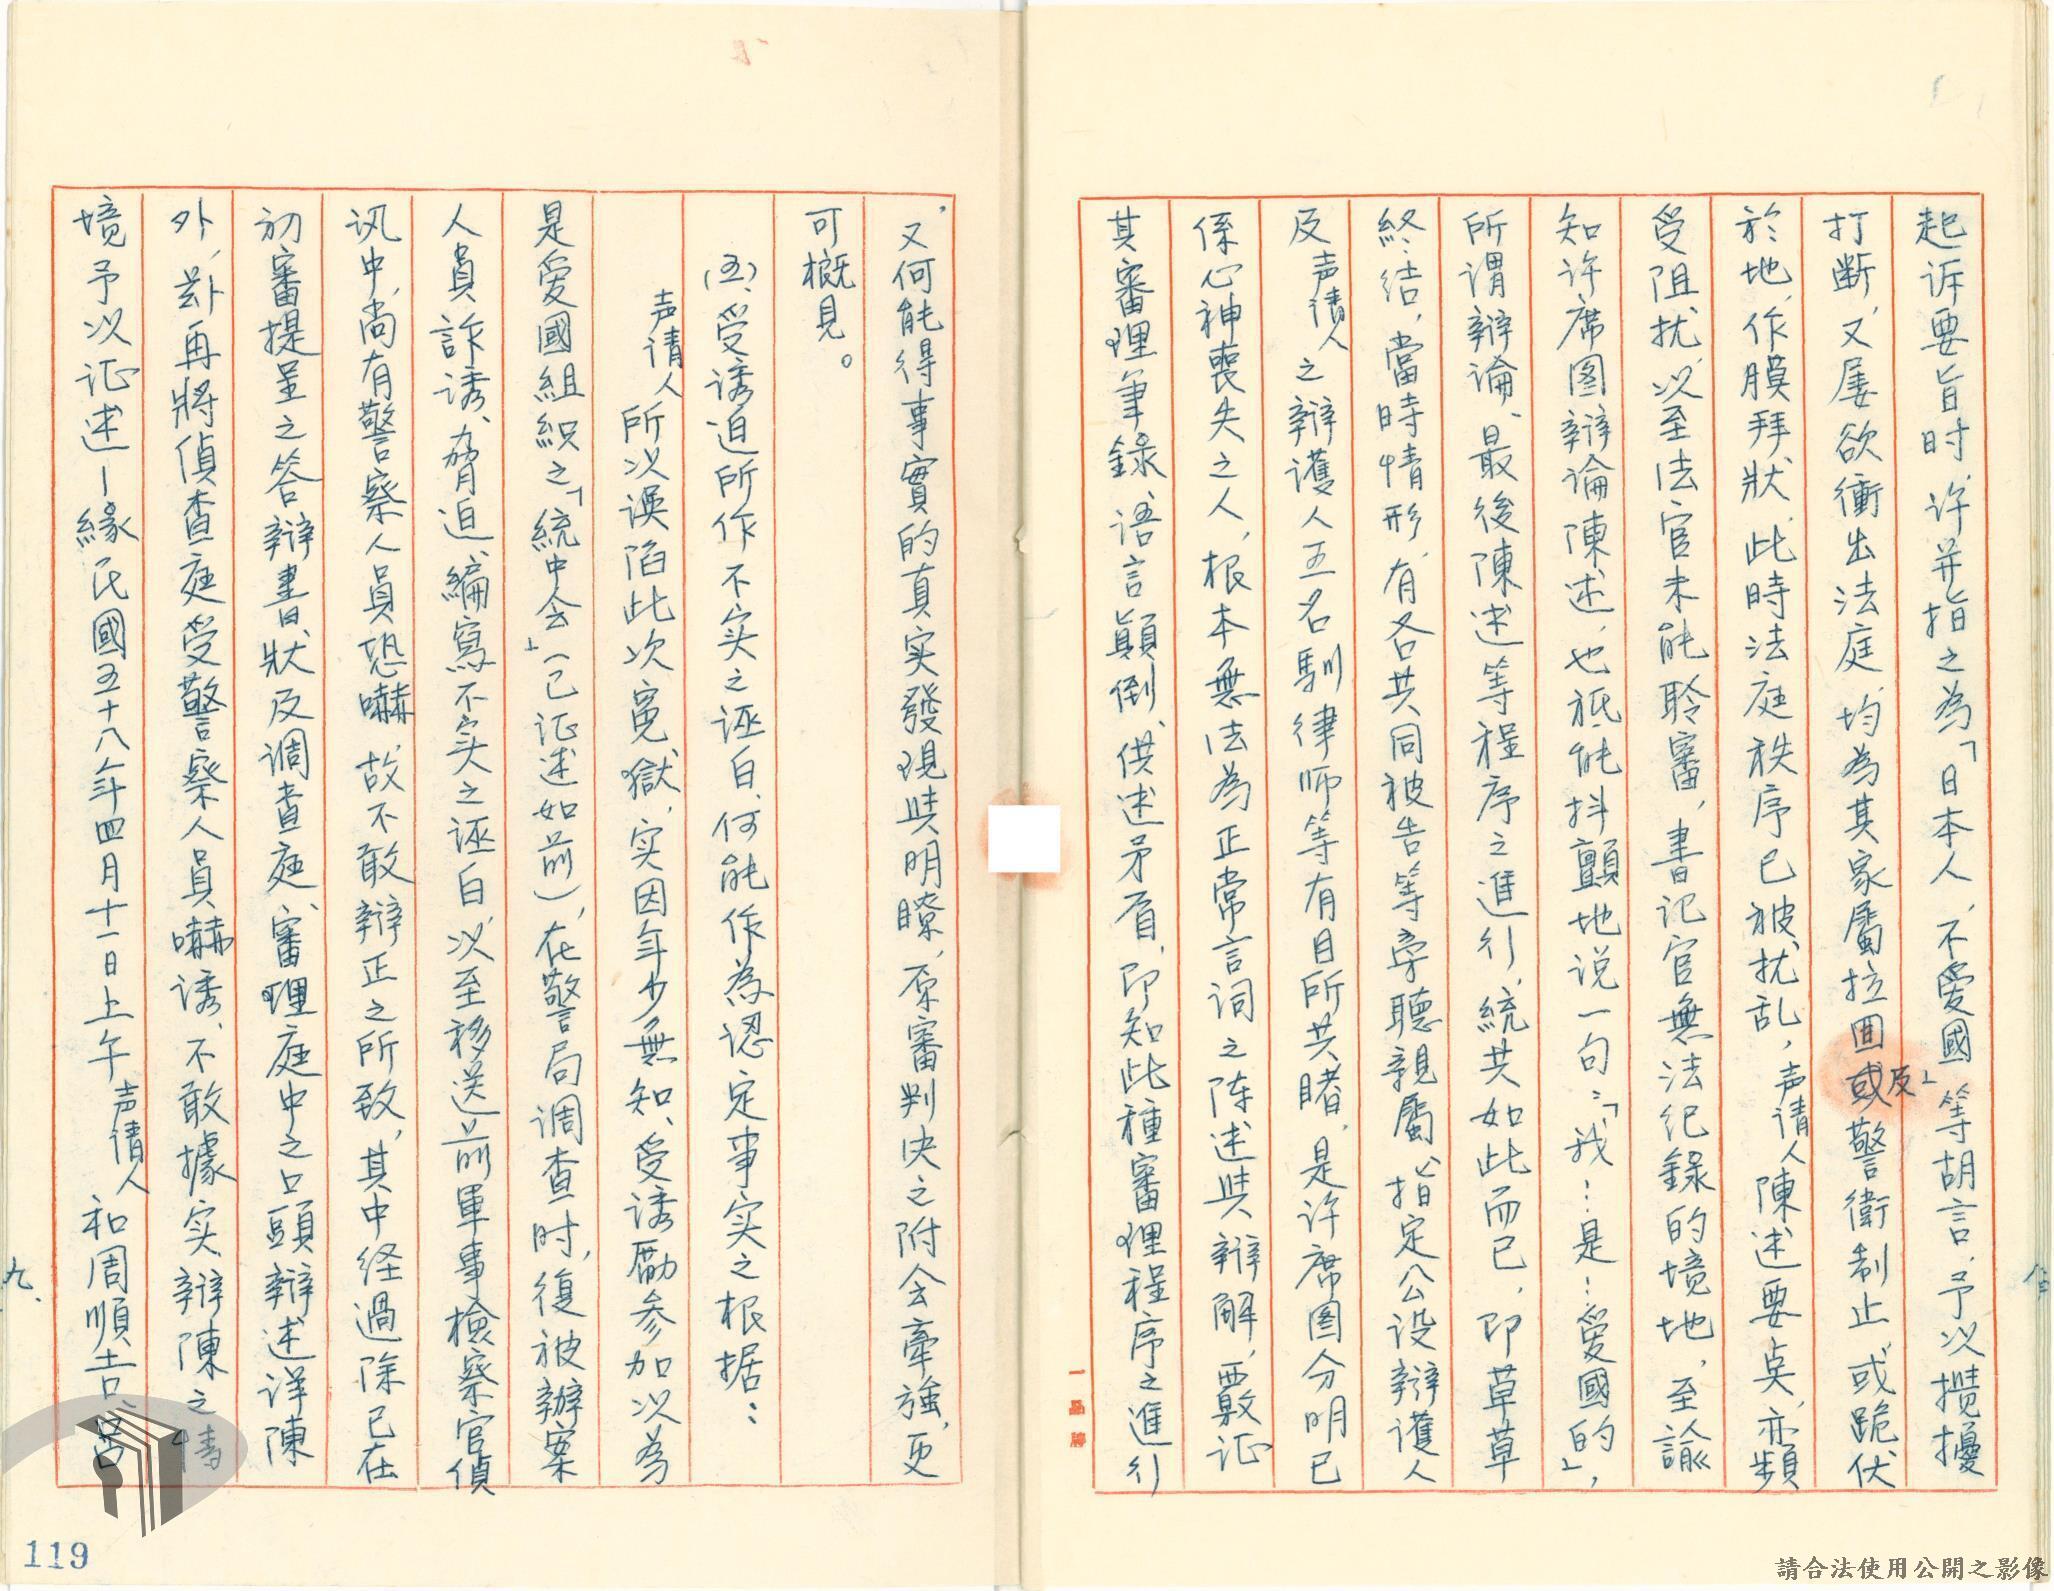 起诉要旨时，许并指之為「日本人，不愛國」等胡言，予以攪擾
打断，又屡欲衝出法庭，均為其家屬拉回或及警衛制止，或跪伏
於地，作膜拜狀，此時法庭秩序已被扰乱，声请人陳述要点，亦頻
受阻扰，以至法官未能聆審，書记官無法纪錄的境地，至諭
知许席图辩論陳述，也祇能抖顫地说一句：「我…是…愛國的」，
所谓辯論、最後陳述等程序之進行，統共如此而已，即草草
終结，當時情形，有各共同被告等旁聽親屬，指定公设辩護人
及声请人之辯護人五名駠律师等有目所共睹，是许席图分明已
係心神喪失之人，根本無法為正常言词之陈述與辯解，覈证
其審理筆錄，语言顛倒、供述矛盾，即知此種審理程序之進行
，又何能得事實的真实發現與明瞭，原審判决之附会牽強，更
可概見。
(五)、受诱迫所作不实之诬白，何能作為認定事实之根据：
声请人所以误陷此次冤獄，实因年少無知、受诱勵参加以為
是愛國组织之「統中会」(已证述如前)，在警局调查时，復被辦案
人員詐诱、脅迫、編寫不实之诬白，以至移送前軍事檢察官偵
讯中，尚有警察人員恐嚇，故不敢辩正之所致，其中経過除已在
初審提呈之答辯書狀及调查庭、審理庭中之口頭辯述详陳
外，兹再將偵查庭受警察人員嚇诱，不敢據实辯陳之情
境予以证述—緣民國五十八年四月十一日上午声请人和周順吉、呂
九、
119
一品牌
請合法使用公開之影像